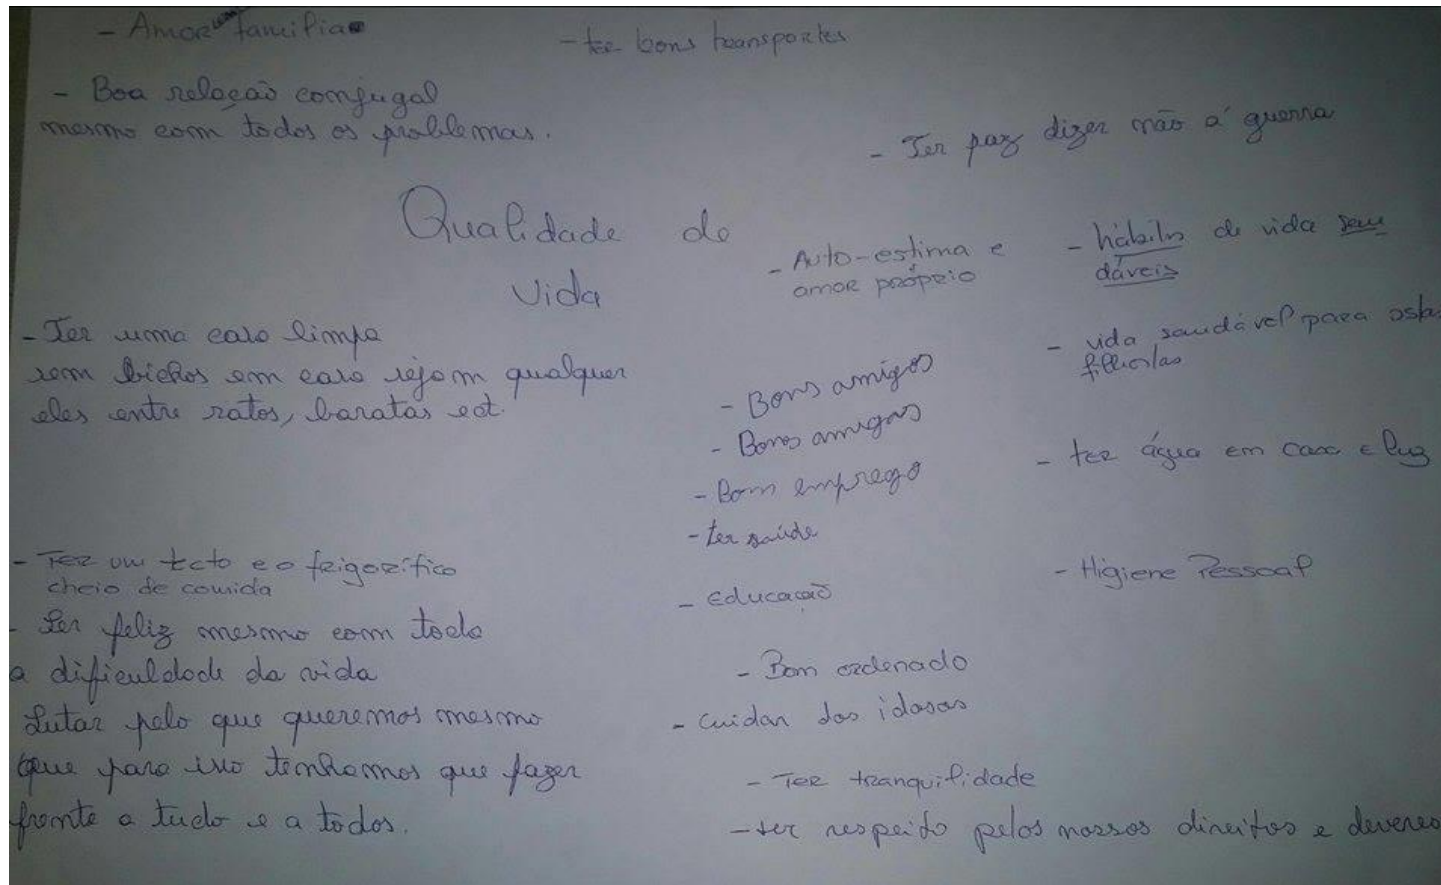 - Amor família
- ter bons transportes
- Boa relação conjugal
mesmo com todos os problemas.
- Ter paz dizer não a guerra
Qualidade de
Vida
- Auto-estima e
amor próprio
- hábitos de vida sau
dáveis
- Ter uma casa limpa
sem bichos em casa sejam qualquer
eles entre ratos, baratas ect.
- vida saudável para os/as
filhos/as
- Bons amigos
- Bons amigas
- Bom emprego
- ter saúde
- ter água em casa e luz
- Ter um tecto e o frigorífico
cheio de comida
- Educação
- Higiene Pessoal
- Ser feliz mesmo com toda
a dificuldade da vida
Lutar pelo que queremos mesmo
que para isso tenhamos que fazer
frente a tudo e a todos.
- Bom ordenado
- Cuidar dos idosos
- Ter tranquilidade
- ter respeito pelos nossos direitos e deveres